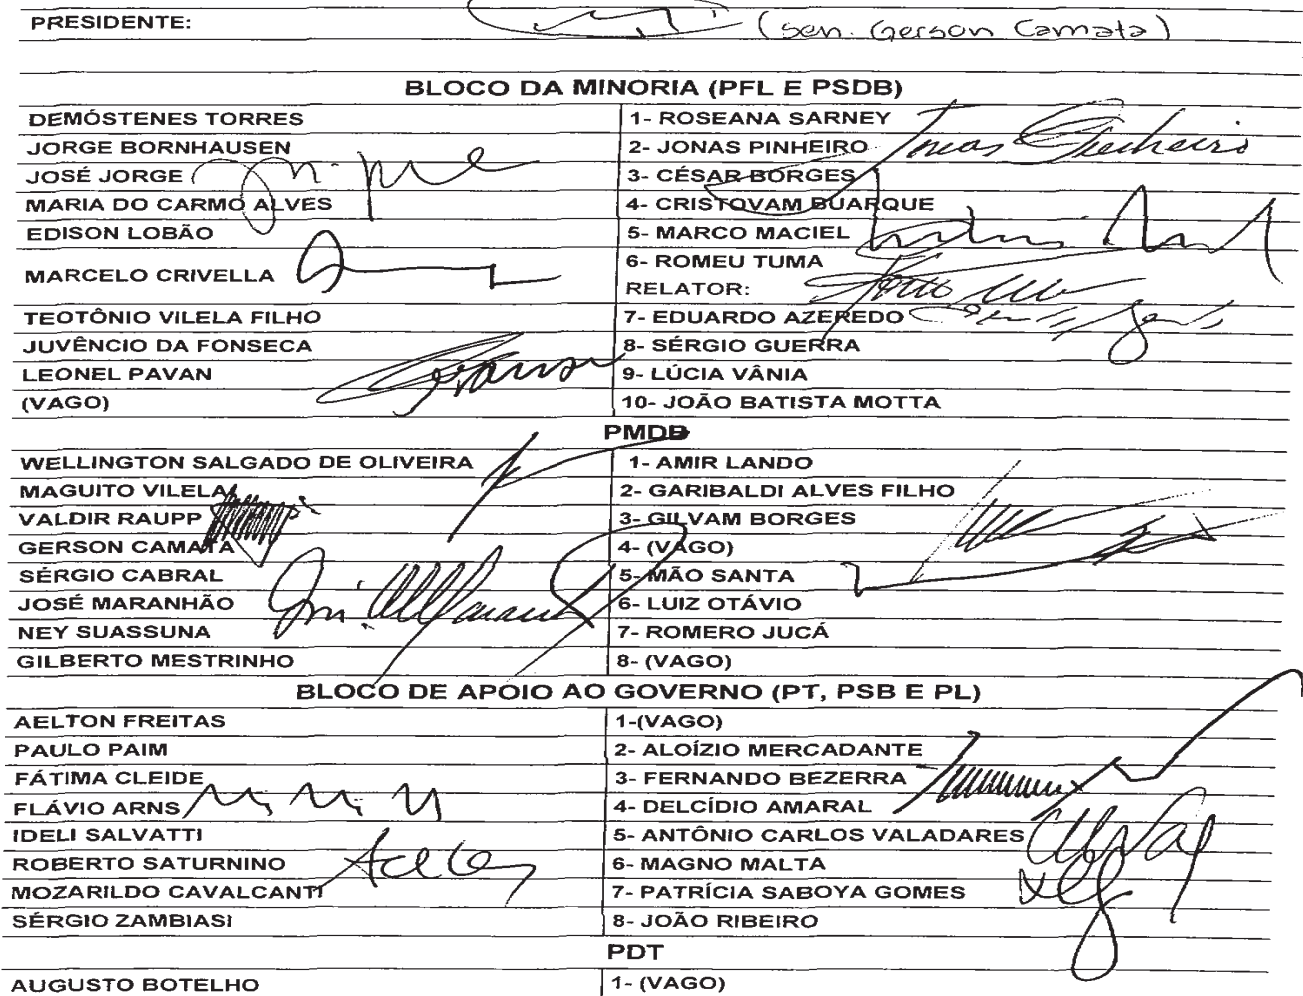 PRESIDENTE: (sen. Gerson Camata)
BLOCO DA MINORIA (PFL E PSDB)
DEMÓSTENES TORRES 1- ROSEANA SARNEY
JORGE BORNHAUSEN 2- JONAS PINHEIRO Jonas Pinheiro
JOSÉ JORGE 3- CÉSAR BORGES
MARIA DO CARMO ALVES 4- CRISTOVAM BUARQUE
EDISON LOBÃO 5- MARCO MACIEL
MARCELO CRIVELLA 6- ROMEU TUMA
RELATOR:
TEOTÔNIO VILELA FILHO 7- EDUARDO AZEREDO
JUVÊNCIO DA FONSECA 8- SÉRGIO GUERRA
LEONEL PAVAN 9- LÚCIA VÂNIA
(VAGO) 10- JOÃO BATISTA MOTTA
PMDB
WELLINGTON SALGADO DE OLIVEIRA 1- AMIR LANDO
MAGUITO VILELA 2- GARIBALDI ALVES FILHO
VALDIR RAUPP 3- GILVAM BORGES
GERSON CAMATA 4- (VAGO)
SÉRGIO CABRAL 5- MÃO SANTA
JOSÉ MARANHÃO 6- LUIZ OTÁVIO
NEY SUASSUNA 7- ROMERO JUCÁ
GILBERTO MESTRINHO 8- (VAGO)
BLOCO DE APOIO AO GOVERNO (PT, PSB E PL)
AELTON FREITAS 1-(VAGO)
PAULO PAIM 2- ALOÍZIO MERCADANTE
FÁTIMA CLEIDE 3- FERNANDO BEZERRA
FLÁVIO ARNS 4- DELCÍDIO AMARAL
IDELI SALVATTI 5- ANTÔNIO CARLOS VALADARES
ROBERTO SATURNINO 6- MAGNO MALTA
MOZARILDO CAVALCANTI 7- PATRÍCIA SABOYA GOMES
SÉRGIO ZAMBIASI 8- JOÃO RIBEIRO
PDT
AUGUSTO BOTELHO 1- (VAGO)